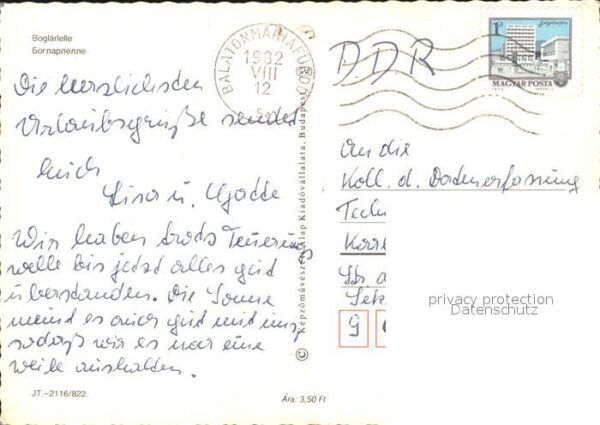 Boglárlelle
Богларлелле
Die herzlichsten
Urlaubsgrüße sendet
Euch
u.
Wir haben trotz Teuerungs
welle bis jetzt alles gut
überstanden. Die Sonne
meint es auch gut mit uns,
sodaß wir es noch eine
weile aushalten.
JT.–2116/822.
Ára: 3,50 Ft
© Képzőművészeti Alap Kiadóvállalata, Budapest
BALATONMÁRIAFÜRDŐ
1982
VIII
12
DDR
MAGYAR POSTA
An die
Koll. d. Datenerfassung
Tech
Str
9
privacy protection
Datenschutz